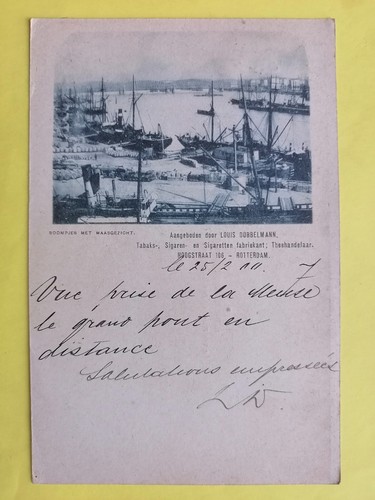 BOOMPJES MET MAASGEZICHT.
Aangeboden door LOUIS DOBBELMANN,
Tabaks-, Sigaren- en Sigaretten fabrikant; Theehandelaar,
HOOGSTRAAT 108, – ROTTERDAM.
le 25/2
Vue prise de la Meuse
le grand pont en
distance
Salutations empressées